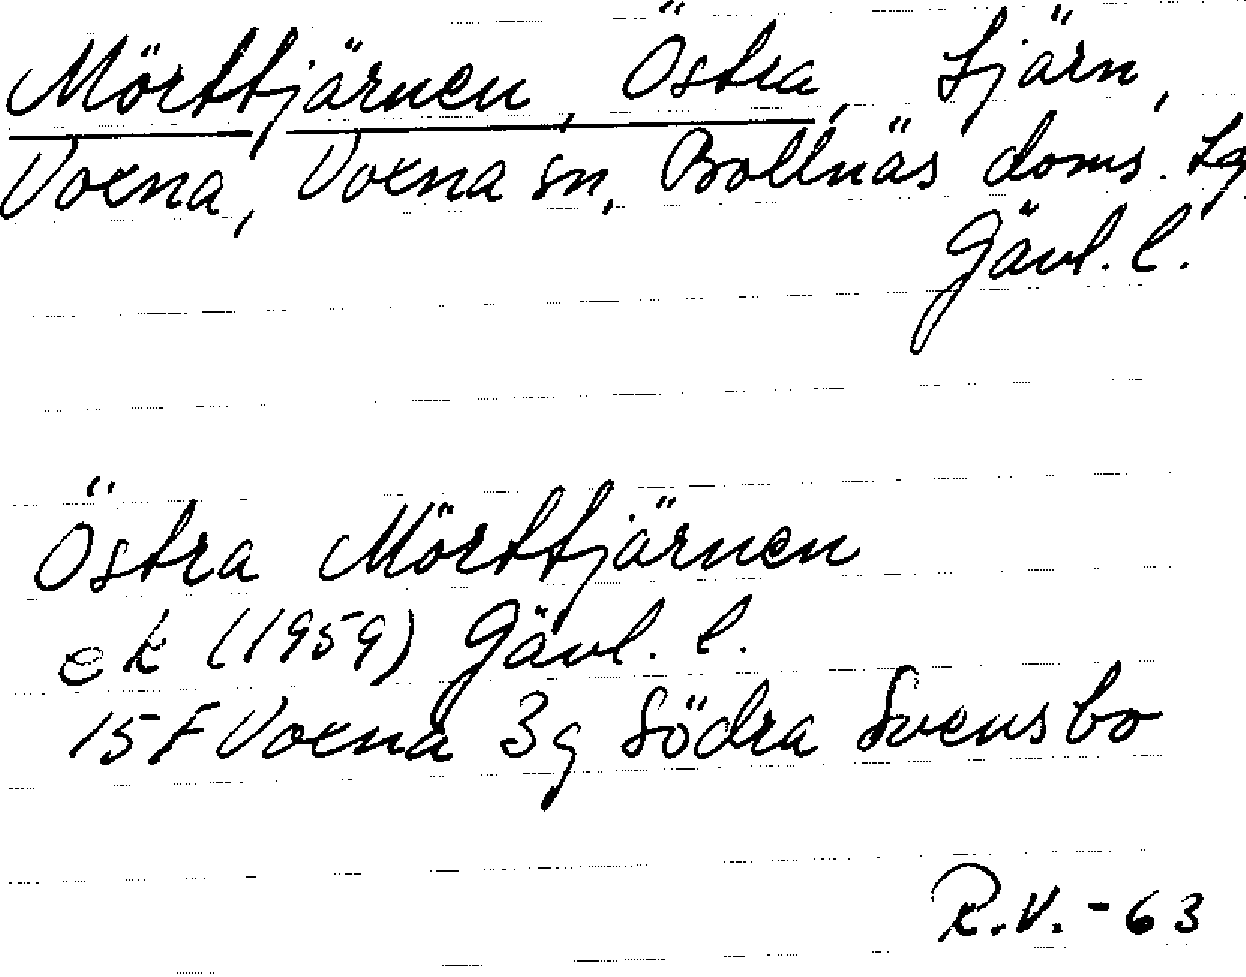 Mörttjärnen, Östra, tjärn,
Voxna, Voxna sn, Bollnäs doms. tg
Gävl. l.
Östra Mörttjärnen
ek (1959) Gävl. l.
15F Voxna 3g Södra Svensbo
R.V. -63